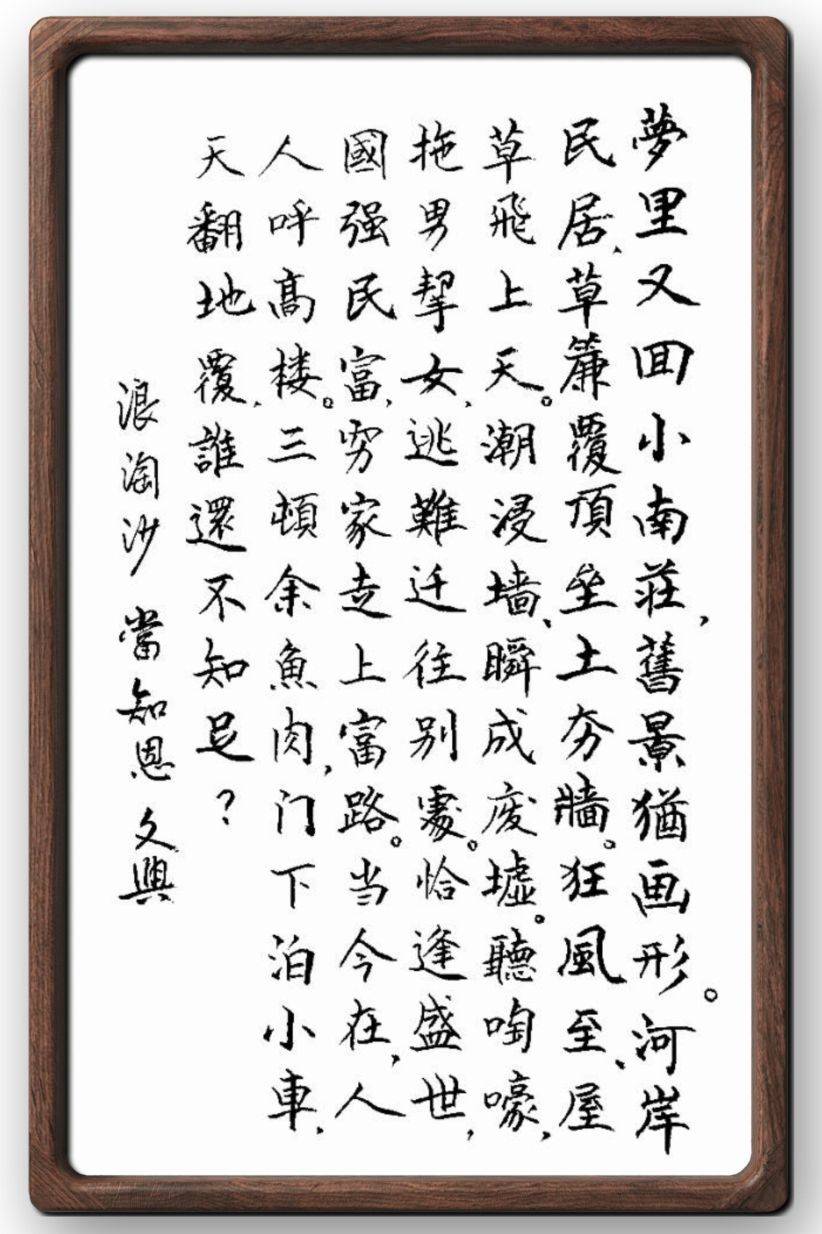 夢里又囬小南莊，舊景猶画形。河岸
民居、草簾覆頂垒土夯牆。狂風至、屋
草飛上天。潮浸墙、瞬成废墟。聽啕嚎，
拖男挈女，逃難迁往别處。恰逢盛世，
國强民富，穷家走上富路。当今在，人
人呼高楼。三頓余魚肉，门下泊小車，
天翻地覆，誰還不知足？
浪淘沙 當知恩 文興